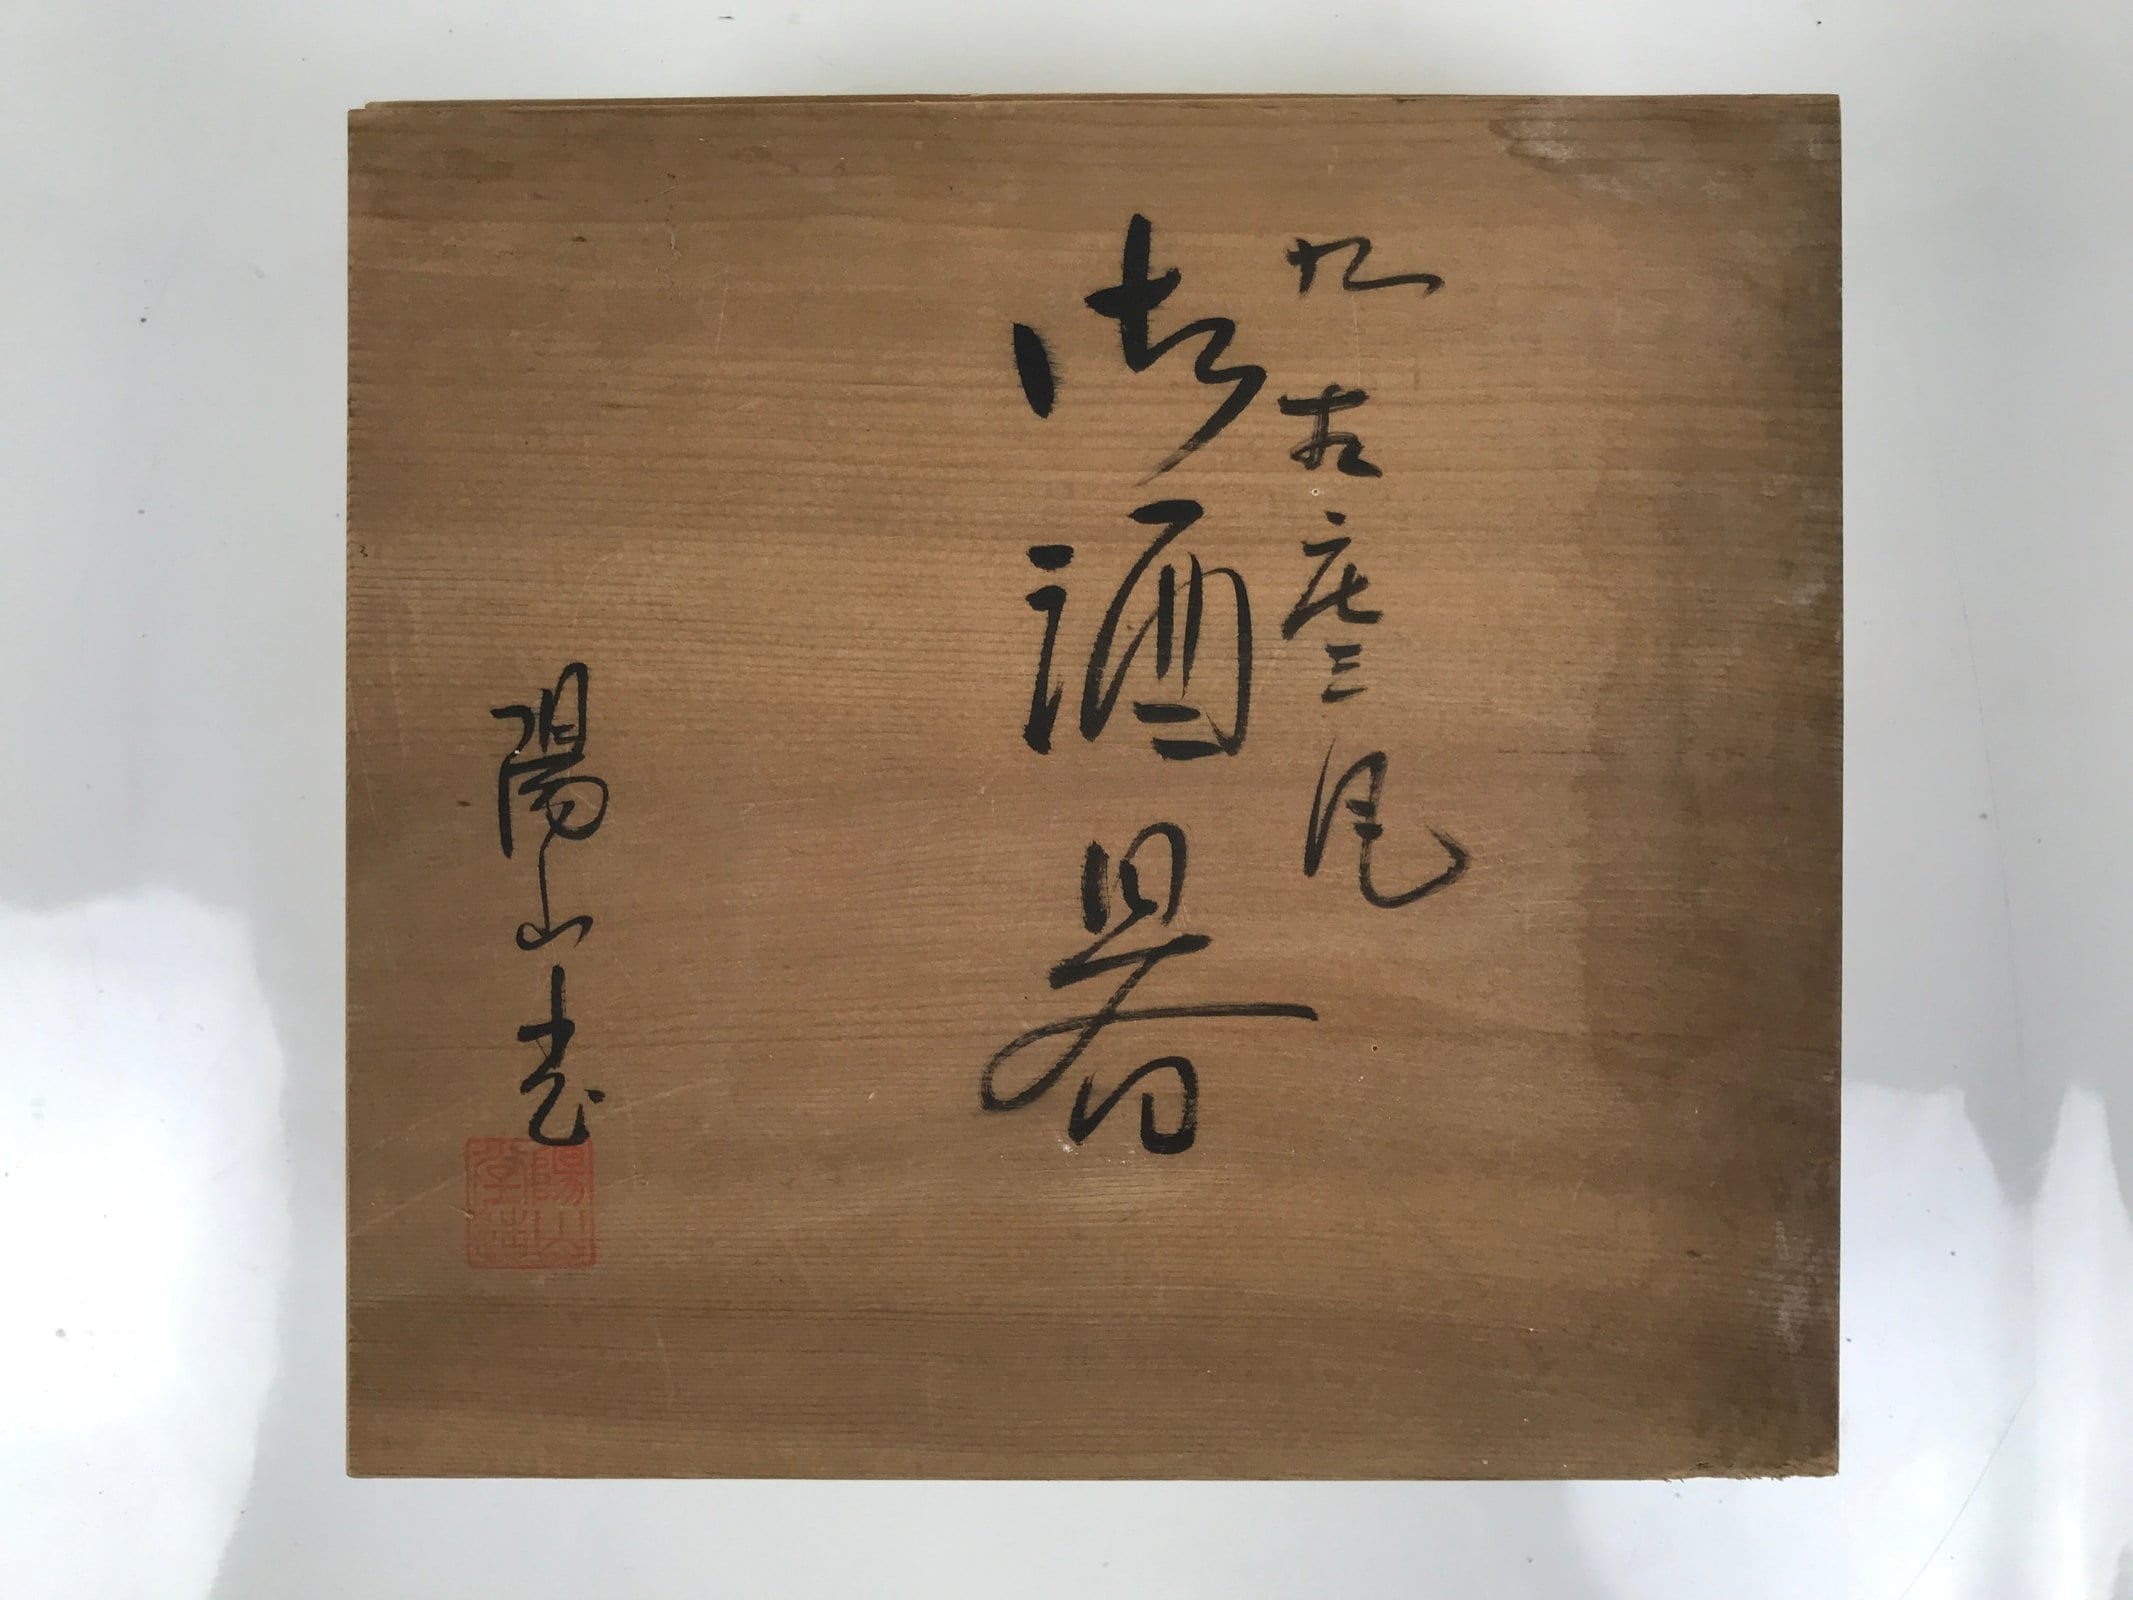 九谷庄三風
御酒器
陽山堂
陽山
堂造